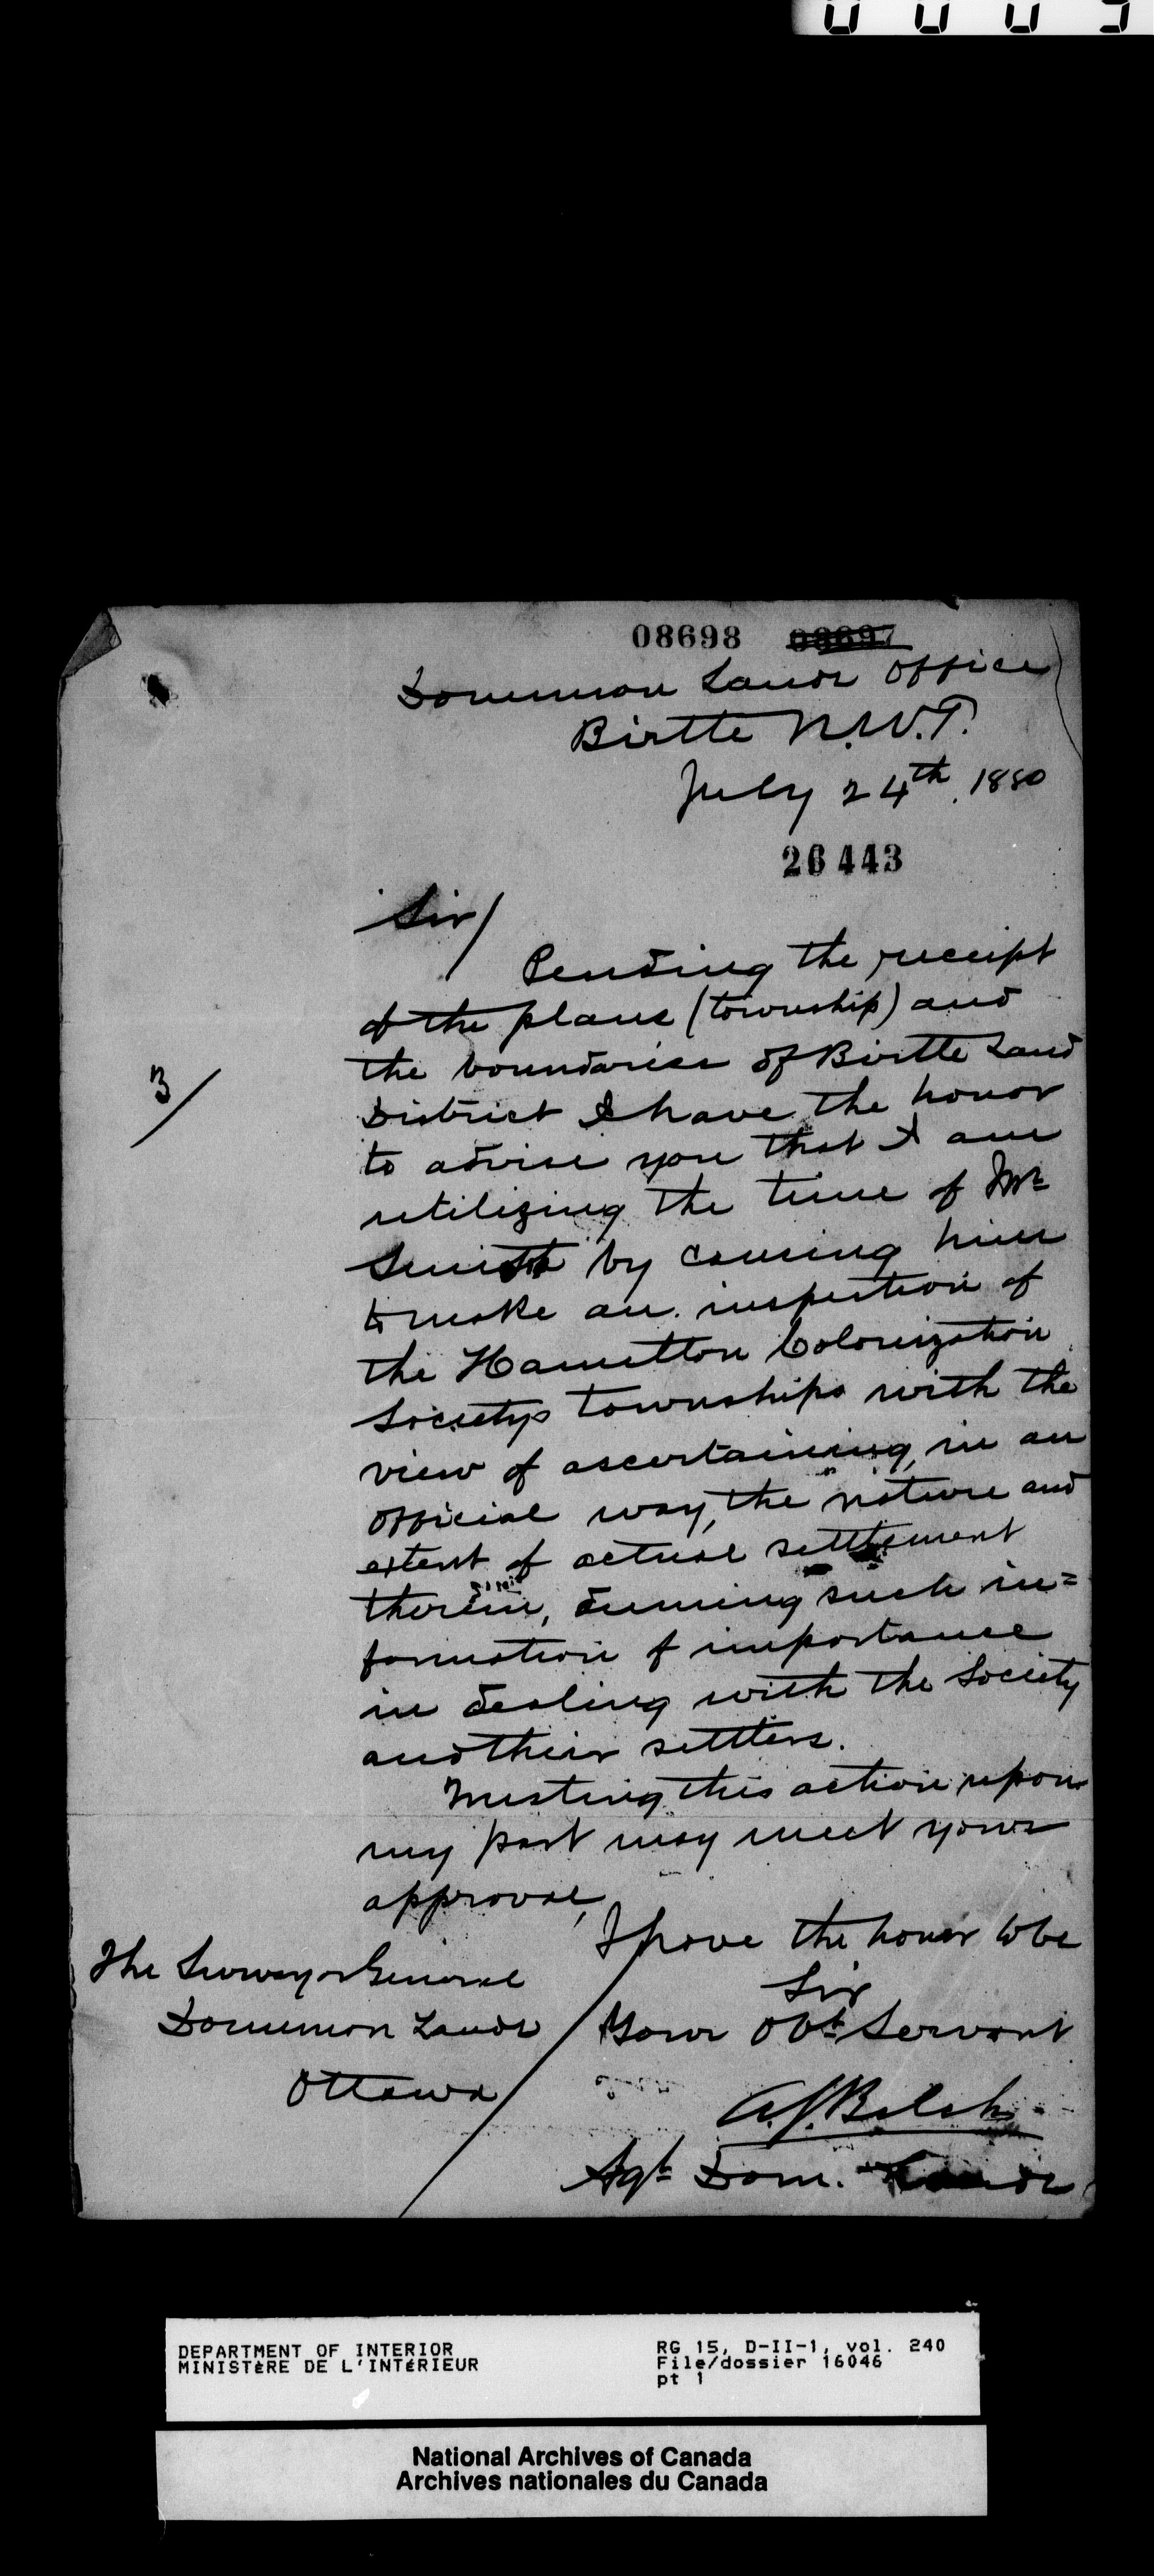 08698 08697
Dominion Lands Office
Birtle N.W.T.
July 24th. 1880
26443
Sir/
Pending the receipt
of the plans (township) and
the boundaries of Birtle Land
District I have the honor
3/
to advise you that I am
utilizing the time of Mr
Smith by causing him
to make an inspection of
the Hamilton Colonization
Society's townships with the
view of ascertaining, in an
official way, the nature and
extent of actual settlement
therein, deeming such in=
formation of importance
in dealing with the Society
and their settlers.
Trusting this action upon
my part may meet your
approval,
I have the honor to be
Sir
Your Obt Servant
A.J. Belch
Agt Dom. Lands
The Surveyor General
Dominion Lands
Ottawa
DEPARTMENT OF INTERIOR
MINISTÈRE DE L'INTÉRIEUR
RG 15, D-II-1, vol. 240
File/dossier 16046
pt 1
National Archives of Canada
Archives nationales du Canada